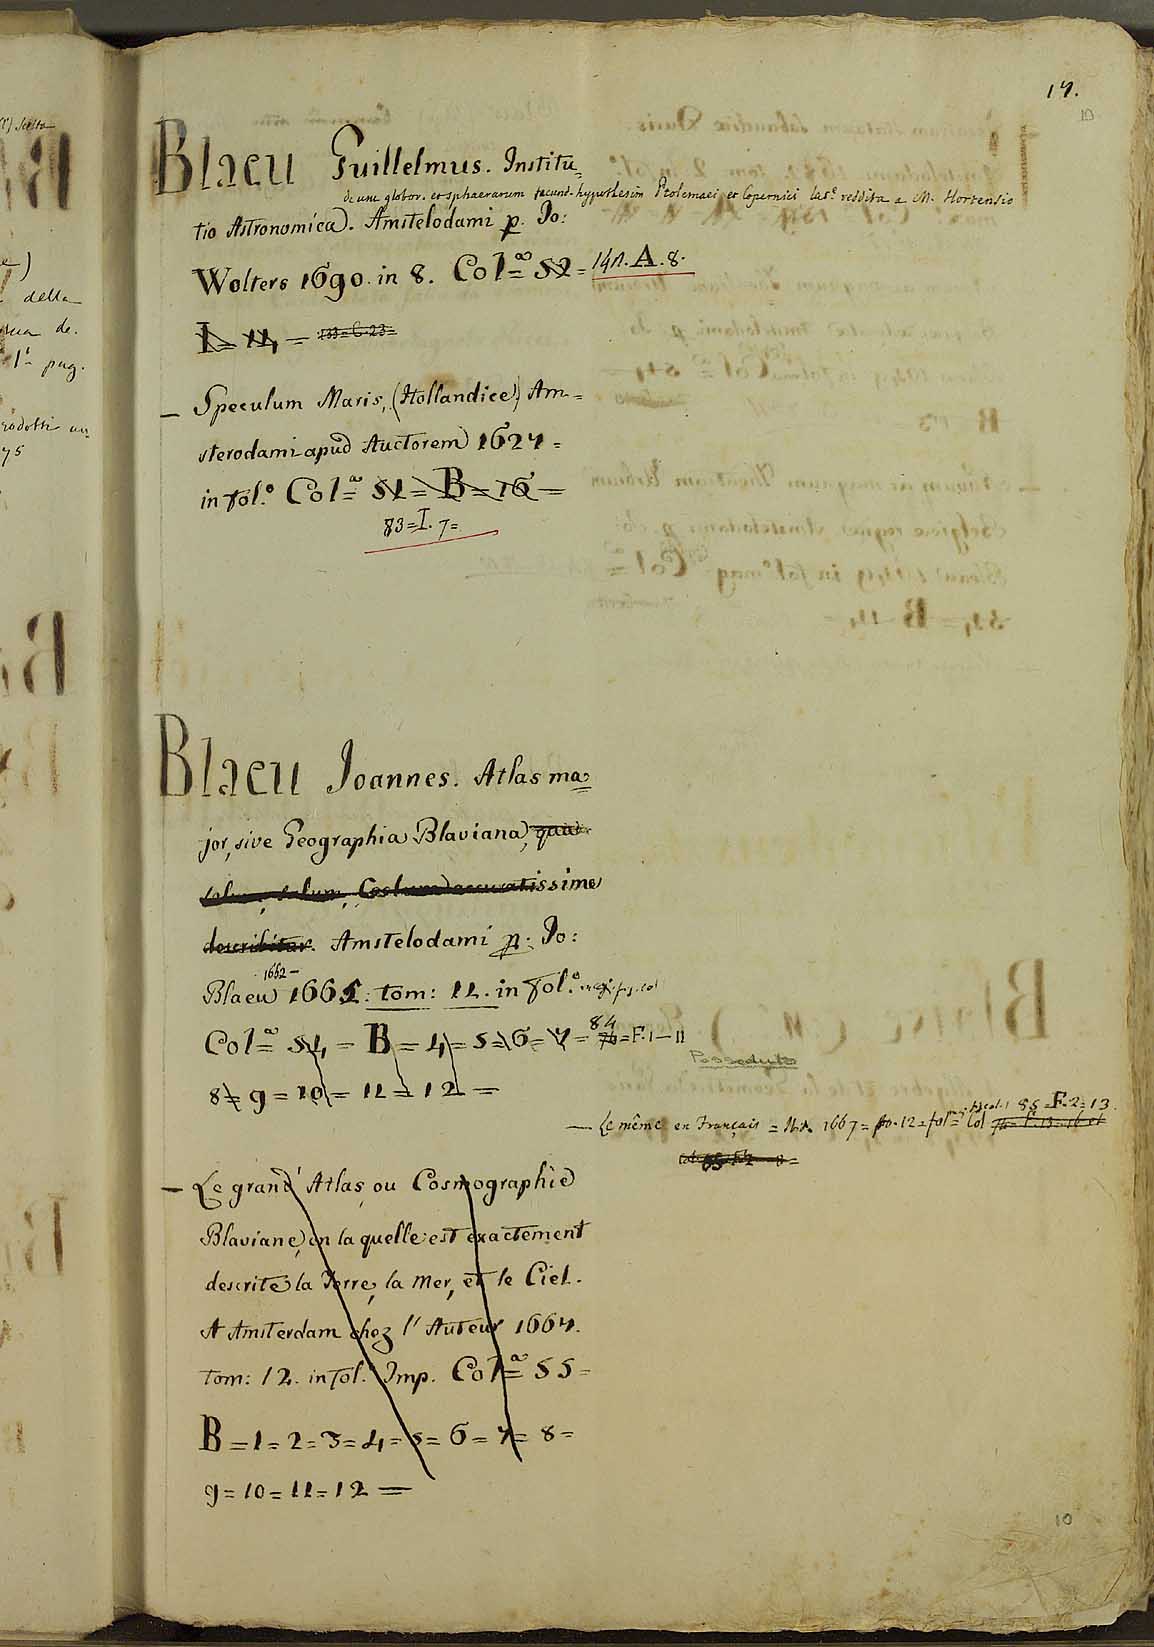 17.
10
Blaeu Guillelmus. Institu=
de usu globor. et sphaerarum secund. hypothesim Ptolemaei et Copernici lat.e reddita a M. Hortensio
tio Astronomica. Amstelodami p. Jo:
Wolters 1690. in 8. Col=a 52 = 141. A. 8.
I = 11 = 133=C.23=
— Speculum Maris, (Hollandice) Am=
sterodami apud Auctorem 1627 =
in fol.o Col=a 51 = B = 16 =
83=I. 7=
Blaeu Joannes. Atlas ma=
jor, sive Geographia Blaviana, qua
solum, salum, Coelum accuratissime
describitur. Amstelodami p: Jo:
1662 —
Blaeu 1665: tom: 11. in fol.o
Col=a 54 = B = 4 = 5 = 6 = 7 = 84 = F. 1 — 11
8 = 9 = 10 = 11 = 12 =
Posseduto
— Le même en Français = 1667 = to. 12 = fol= Col 85 = F. 2 = 13
— Le grand Atlas ou Cosmographie
Blaviane, en la quelle est exactement
descrite la Terre, la Mer, et le Ciel.
A Amsterdam chez l' Auteur 1667.
tom: 12. in fol. Imp. Col=a 55 =
B = 1 = 2 = 3 = 4 = 5 = 6 = 7 = 8 =
9 = 10 = 11 = 12 =
10
della
de.
pag.
75